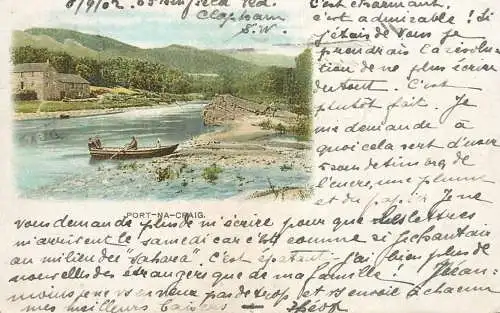 8/9/02. 65 Lingfield Rd
Clapham
S.W.
C'est charmant,
c'est admirable! Si
j'étais de vous je
prendrais la résolu
tion de ne plus écrire
du tout. C'est
plutôt fait. Je
me demande à
quoi cela sert d'user
sans détimorg de
l'encre, une plume
et du papier. Je ne
PORT-NA-CRAIG.
vous demande plus de m'écrire pour que des lettres
m'arrivent le samedi car c'est comme si je chantais
au milieu des "Sahara". C'est épatant j'ai bien plus de
nouvelles des étrangers que de ma famille!
moins je ne vs en veux pas de trop et vs envoie à chacune
mes meilleurs baisers